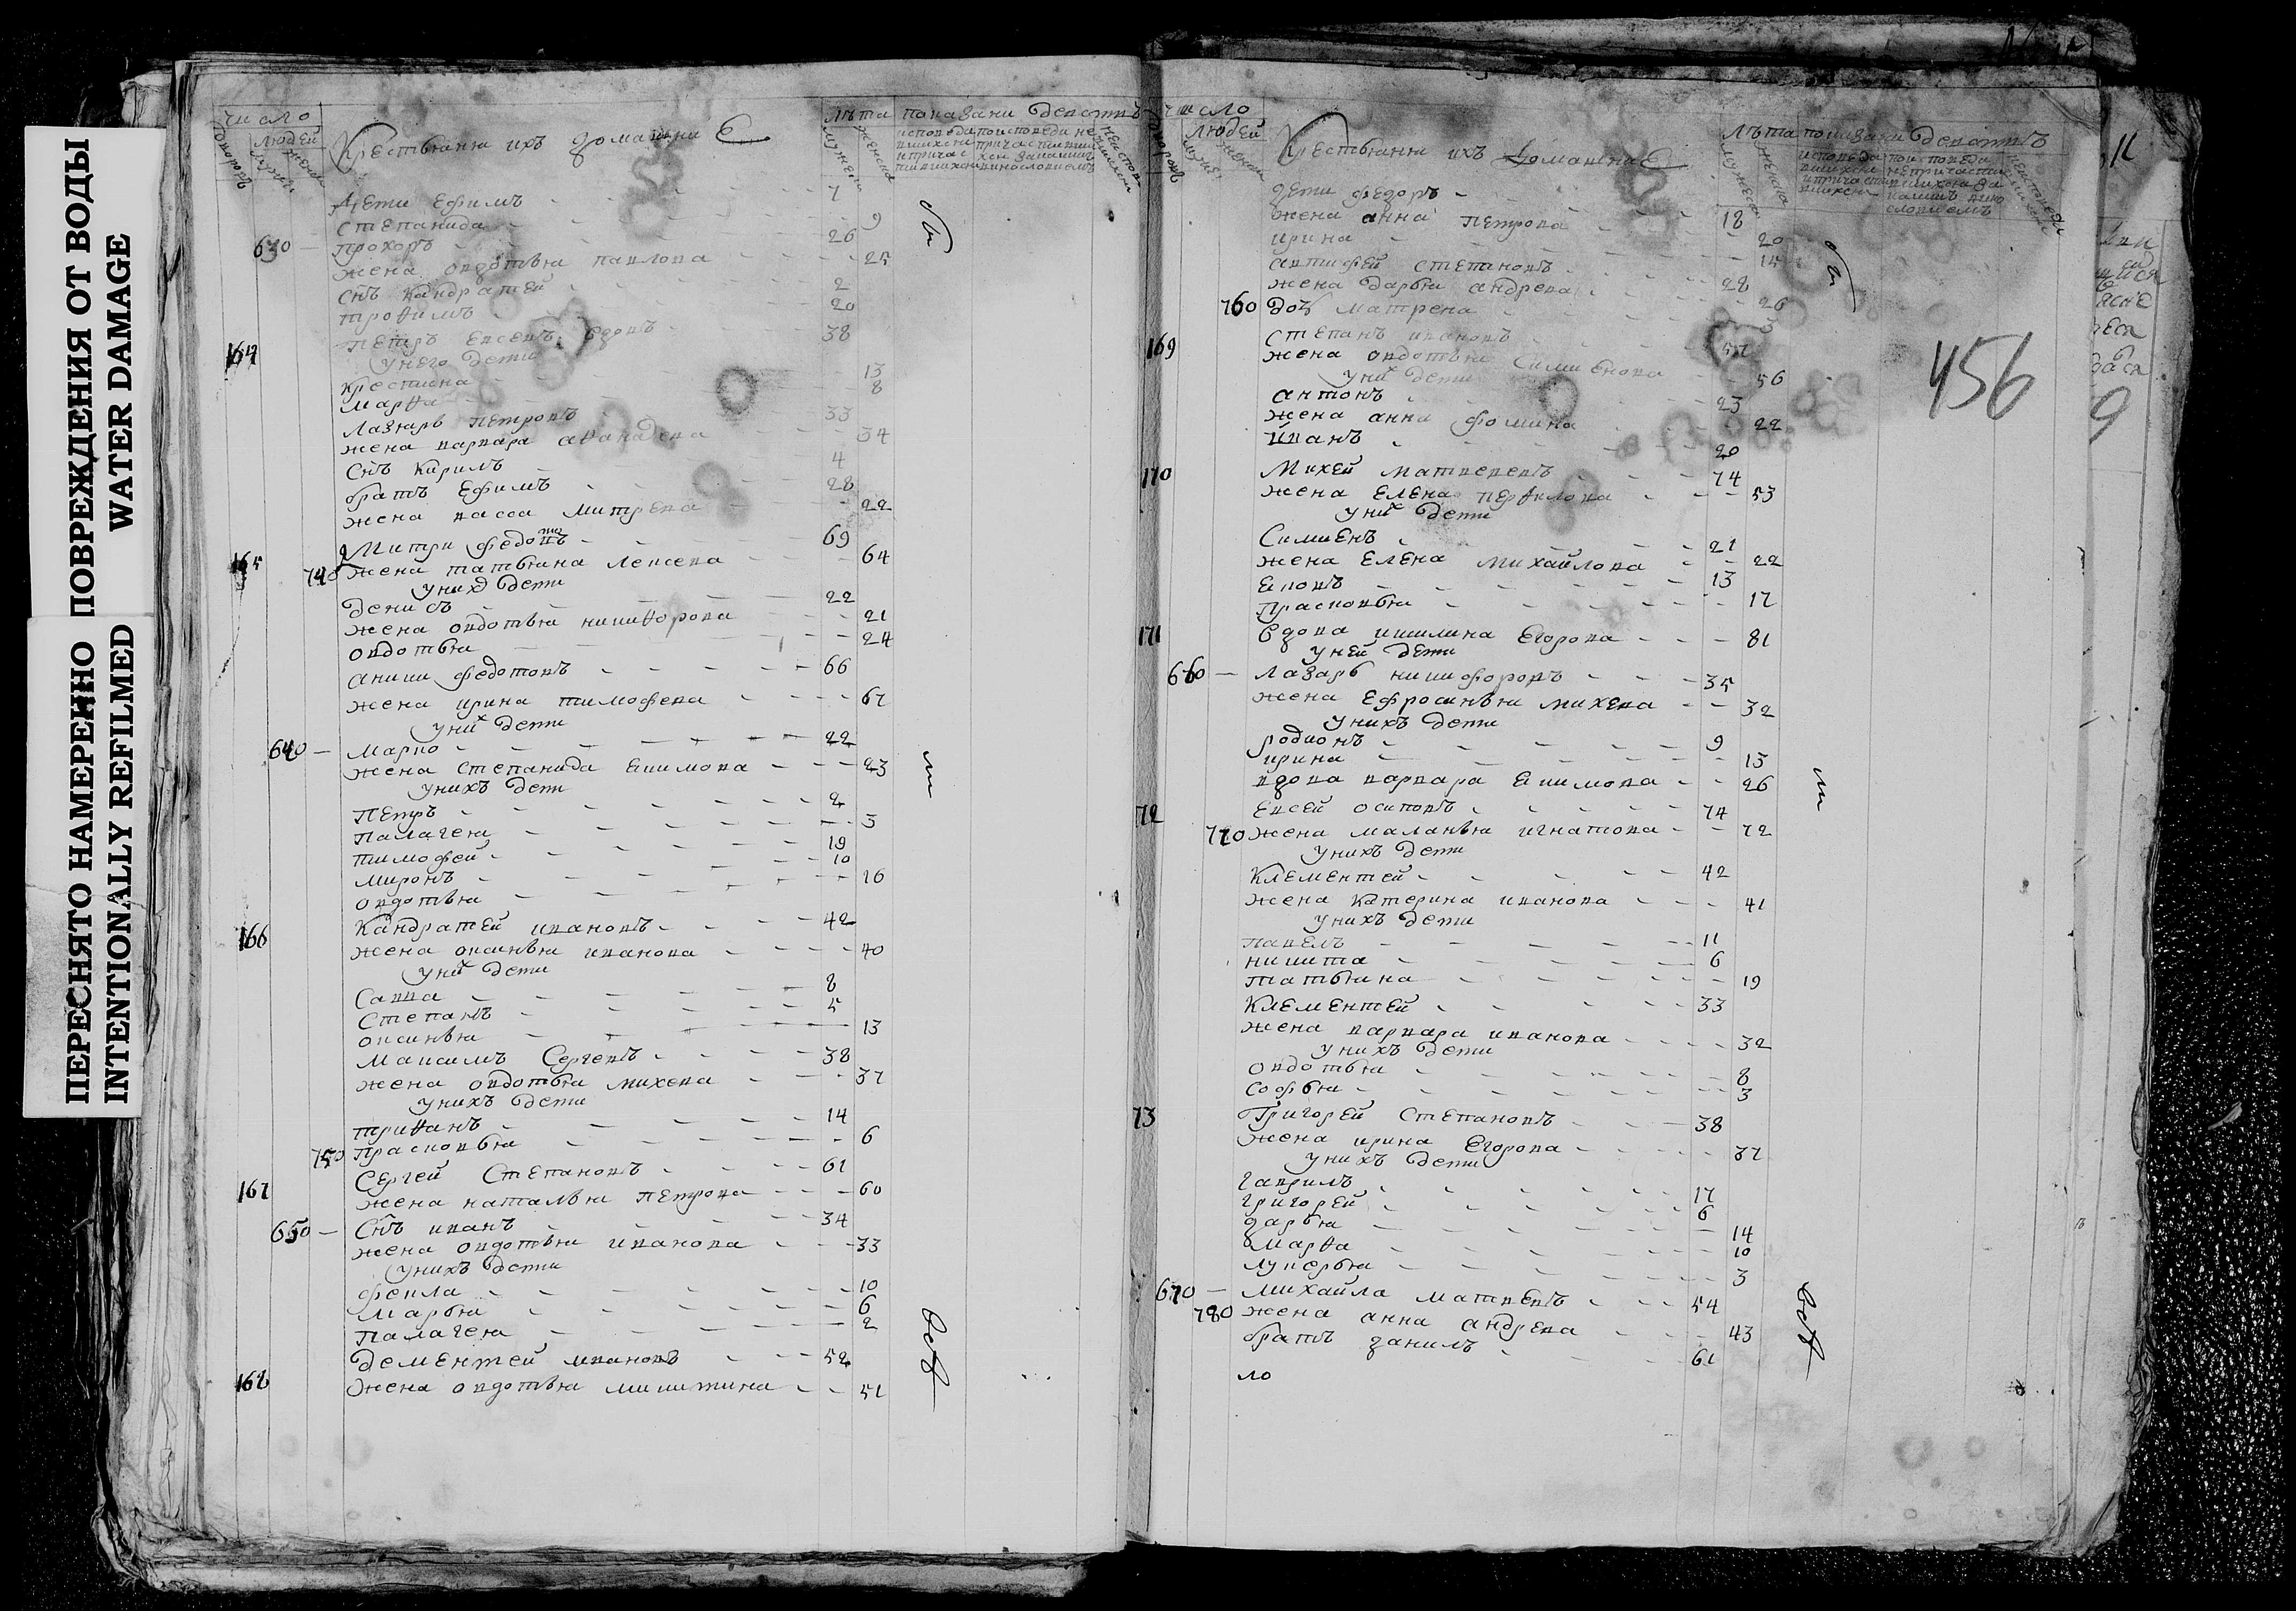 ПЕРЕСНЯТО НАМЕРЕННО ПОВРЕЖДЕНИЯ ОТ ВОДЫ
INTENTIONALLY REFILMED WATER DAMAGE
число
людей
Крестьяня ихъ домашни Е
лѣта показани
дети Ефимъ 7
Степанида 9
630 — прохоръ 26
жена овдотья павлова 25
сн̃ъ кандратей 2
троѳимъ 20
164 Петръ 38
у него дети
крестина 13
марѳа 8
Лазарь петровъ 33
жена варвара 34
сн̃ъ Кирилъ 4
братъ Ефимъ 28
жена васса митрева 22
165 Митри федотовъ 69
740 жена татьяна Лексева 64
у них дети
денисъ 22
жена овдотья никиѳорова 21
овдотья 24
аники федотовъ 66
жена ирина тимофева 67
у них дети
640 — марко 22
жена степанида Екимова 23
у нихъ дети
петръ 2
палагея 3
тимофей 19
миронъ 10
овдотья 16
166 Кандратей ивановъ 42
жена оксинья иванова 40
у них дети
Савва 8
Степанъ 5
оксинья 13
Максимъ Сергевъ 38
жена овдотья михева 37
у нихъ дети
триѳанъ 14
750 прасковья 6
167 Сергей Степановъ 61
жена наталья петрова 60
650 — Сн̃ъ иванъ 34
жена овдотья иванова 33
у нихъ дети
фекла 10
марья 6
палагея 2
168 дементей ивановъ 52
жена овдотья микитина 51
число
людей
Крестьяня ихъ домашние
лѣта показани
дети федоръ 18
жена анна петрова 20
ирина 15
антифей степановъ 28
жена дарья андрева 26
760 доч матрена 3
169 степанъ ивановъ
жена овдотья Симиенова 56
у них дети
антонъ 23
жена анна фомина 22
иванъ 20
170 Михей матвевевъ 74
жена Елена перѳилова 53
у них дети
Симиенъ 21
жена Елена михайлова 22
Ековъ 13
прасковья 17
171 вдова акилина Егорова 81
у ней дети
660 — Лазарь никифоровъ 35
жена Ефросинья михева 32
у нихъ дети
родионъ 9
ирина 13
вдова варвара Екимова 26
72 Евсей осиповъ 74
770 жена маланья игнатова 72
у нихъ дети
Клементей 42
жена катерина иванова 41
у нихъ дети
павелъ 11
никита 6
татьяна 19
Клементей 33
жена варвара иванова 32
у нихъ дети
овдотья 8
софья 3
73 Григорей Степановъ 38
жена ирина Егорова 37
у нихъ дети
гаврилъ 17
григорей 6
дарья 14
марѳа 10
лукерья 3
670 — михайла матвевъ 54
780 жена анна андрева 43
братъ данилъ 61
ло
456